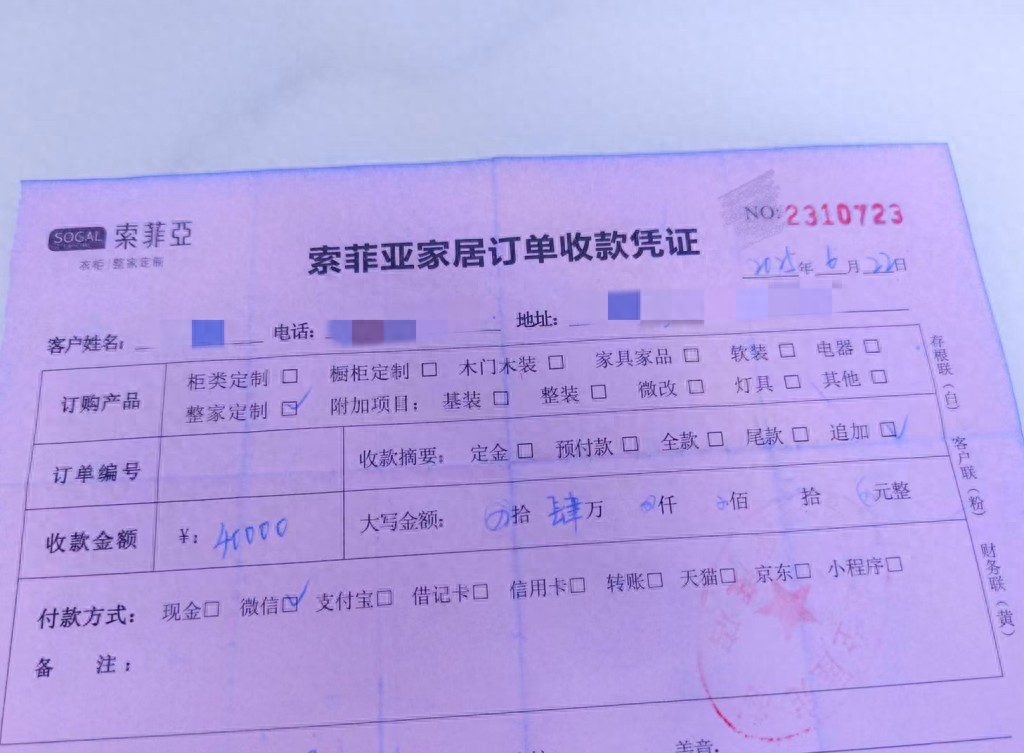 NO: 2310723
SOGAL 索菲亞
衣柜/整家定制
索菲亚家居订单收款凭证
年 月 22日
客户姓名: 电话: 地址:
订购产品
柜类定制 □ 橱柜定制 □ 木门木装 □ 家具家品 □ 软装 □ 电器 □
整家定制 ☑ 附加项目: 基装 □ 整装 □ 微改 □ 灯具 □ 其他 □
订单编号
收款摘要: 定金 □ 预付款 □ 全款 □ 尾款 □ 追加 ☑
收款金额 ¥: 40000
大写金额: 拾 肆万 仟 佰 拾 元整
付款方式: 现金□ 微信☑ 支付宝□ 借记卡□ 信用卡□ 转账□ 天猫□ 京东□ 小程序□
备 注:
存根联(白)
客户联(粉)
财务联(黄)